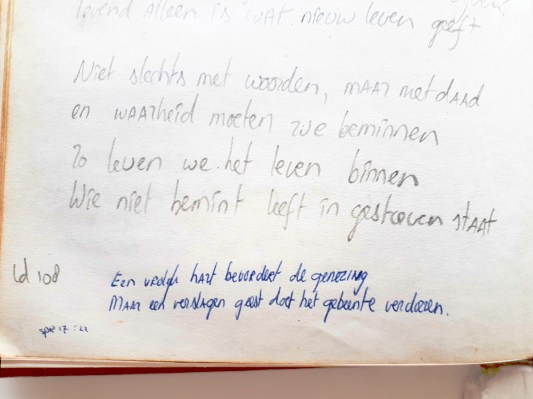 levend alleen is wat nieuw leven geeft
Niet slechts met woorden, maar met daad
en waarheid moeten we beminnen
Zo leven we het leven binnen
Wie niet bemint leeft in gestorven staat
Ld 108
Een vrolijk hart bevordert de genezing
Maar een verslagen geest doet het gebeente verdorren.
spr 17:22